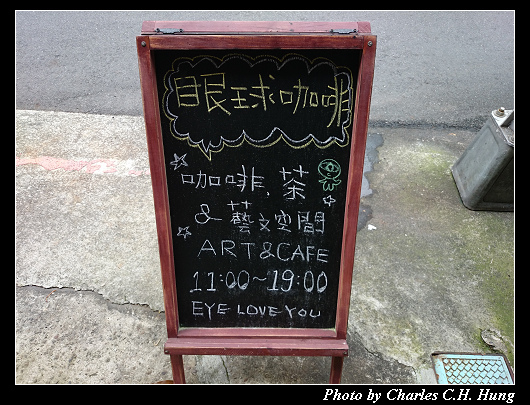 眼球咖啡
咖啡，茶
& 藝文空間
ART & CAFE
11:00~19:00
EYE LOVE YOU
Photo by Charles C.H. Hung